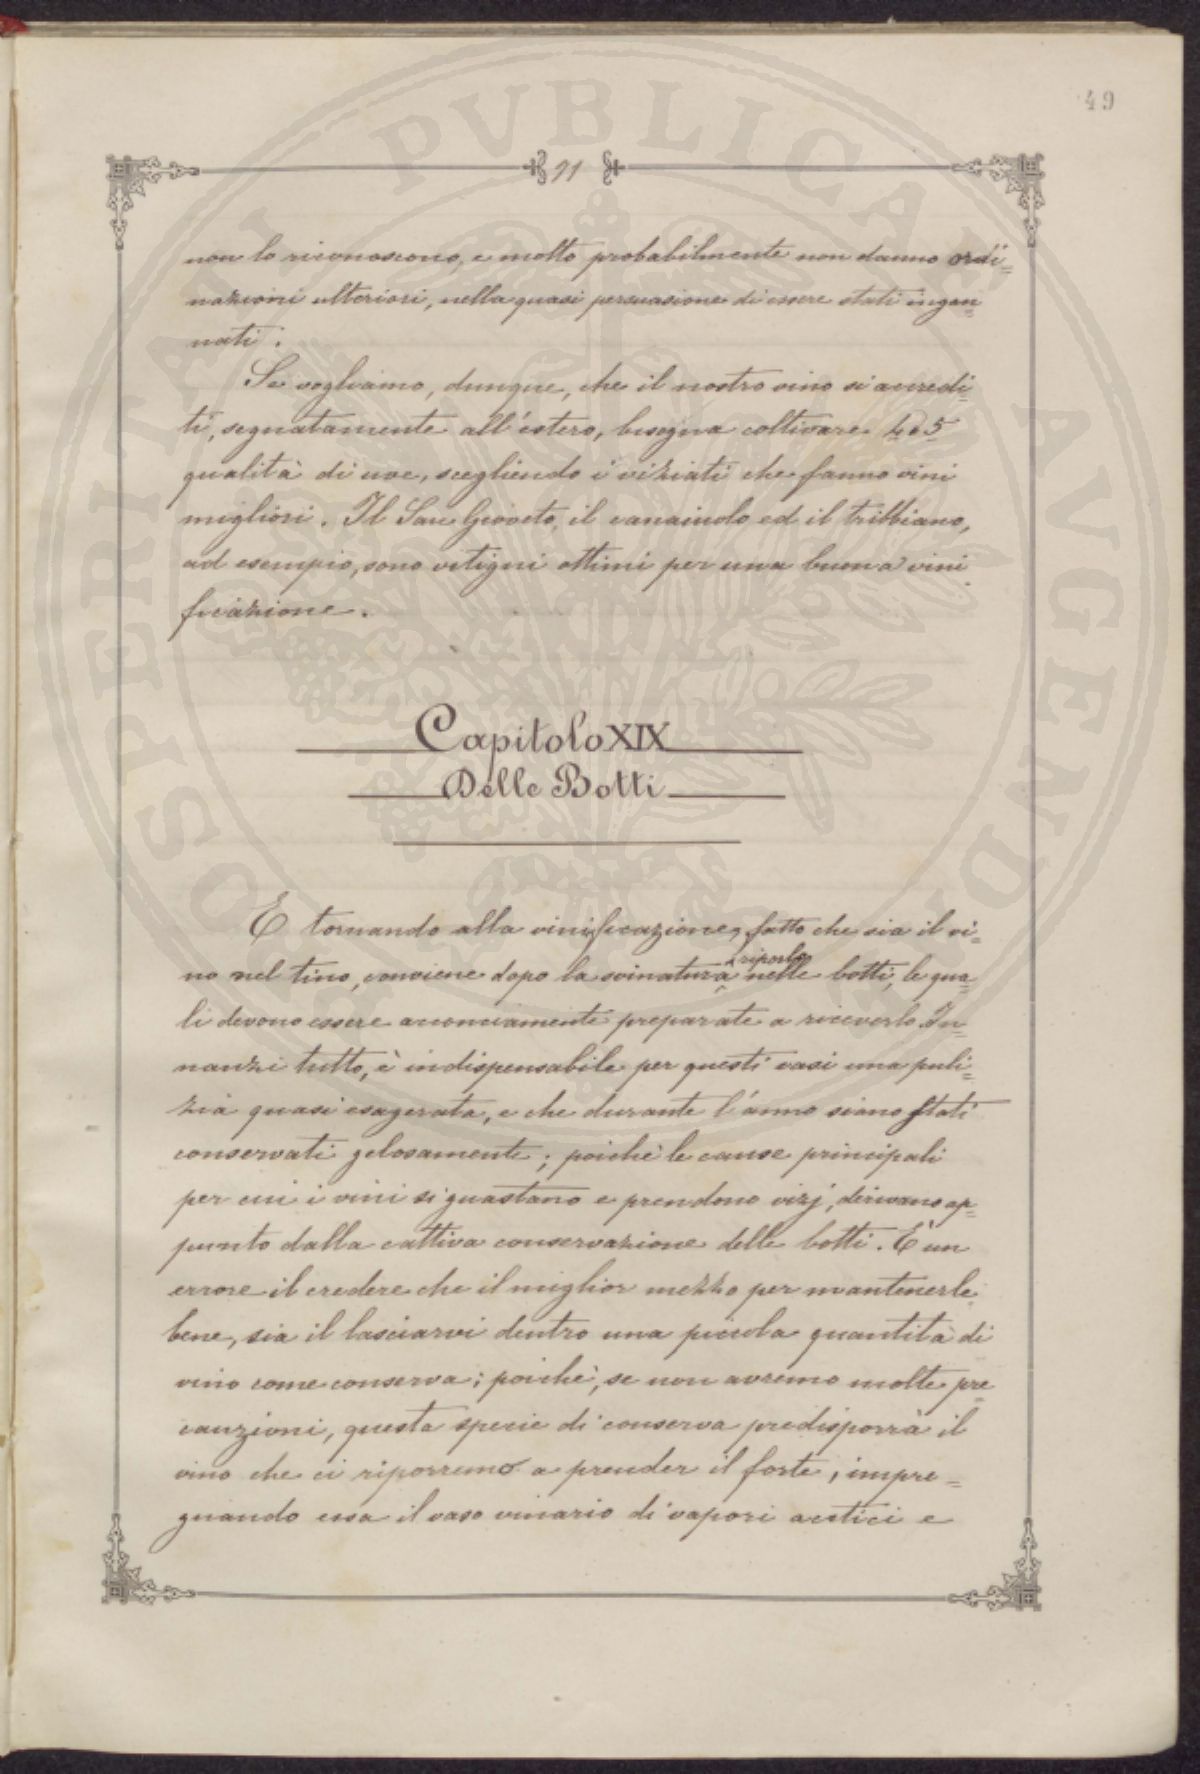 49
91
non lo riconoscono, e molto probabilmente non danno ordi=
nazioni ulteriori, nella quasi persuasione di essere stati ingan=
nati.
Se vogliamo, dunque, che il nostro vino si accredi=
ti, segnatamente all'estero, bisogna coltivare 4 o 5
qualità di uve, scegliendo i viziati che fanno vini
migliori. Il San Gioveto, il canaiuolo ed il tribbiano,
ad esempio, sono vitigni ottimi per una buona vini
ficazione.
Capitolo XIX
Delle Botti
E tornando alla vinificazione, fatto che sia il vi=
no nel tino, conviene dopo la svinatura riporlo nelle botti, le qua=
li devono essere acconciamente preparate a riceverlo. In=
nanzi tutto, è indispensabile per questi vasi una puli=
zia quasi esagerata, e che durante l'anno siano stati
conservati gelosamente; poichè le cause principali
per cui i vini si guastano e prendono vizj, derivano ap=
punto dalla cattiva conservazione delle botti. È un
errore il credere che il miglior mezzo per mantenerle
bene, sia il lasciarvi dentro una piccola quantità di
vino come conserva; poichè, se non avremo molte pre=
cauzioni, questa specie di conserva predisporrà il
vino che ci riporremo a prender il forte, impre=
gnando essa il vaso vinario di vapori acetici e
PVBLICAE
AVGENDAE
PROSPERITATI